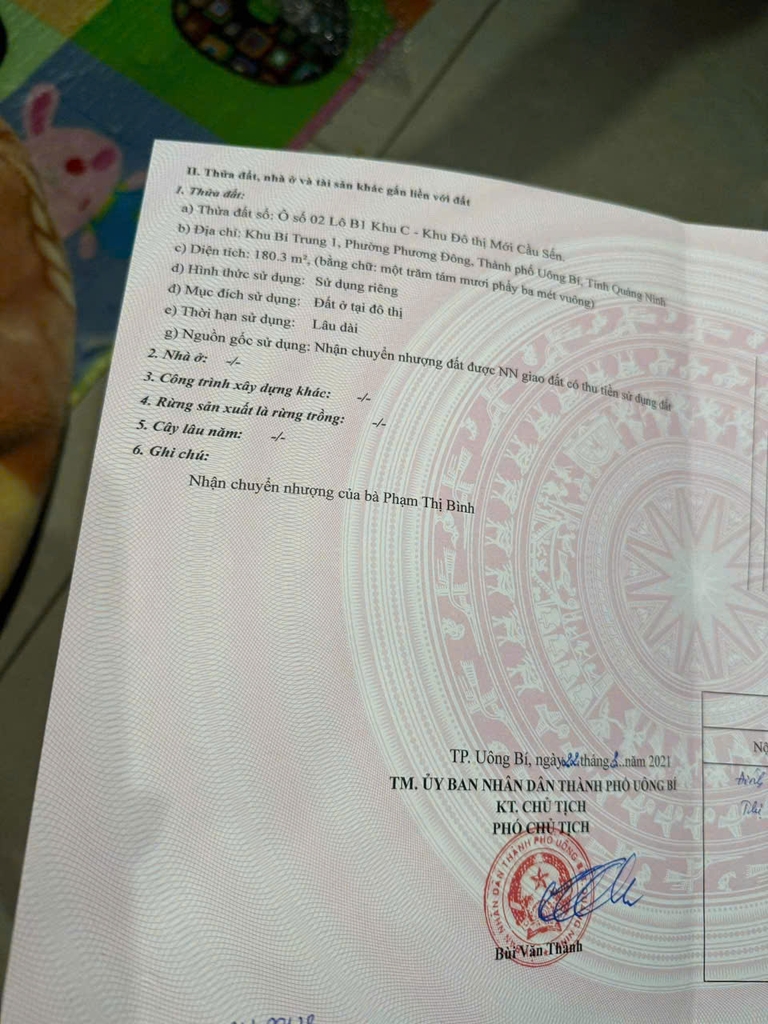 II. Thửa đất, nhà ở và tài sản khác gắn liền với đất
1. Thửa đất:
a) Thửa đất số: Ô số 02 Lô B1 Khu C - Khu Đô thị Mới Cầu Sến.
b) Địa chỉ: Khu Bí Trung 1, Phường Phương Đông, Thành phố Uông Bí, Tỉnh Quảng Ninh
c) Diện tích: 180.3 m², (bằng chữ: một trăm tám mươi phẩy ba mét vuông)
d) Hình thức sử dụng: Sử dụng riêng
đ) Mục đích sử dụng: Đất ở tại đô thị
e) Thời hạn sử dụng: Lâu dài
g) Nguồn gốc sử dụng: Nhận chuyển nhượng đất được NN giao đất có thu tiền sử dụng đất
2. Nhà ở: -/-
3. Công trình xây dựng khác: -/-
4. Rừng sản xuất là rừng trồng: -/-
5. Cây lâu năm: -/-
6. Ghi chú:
Nhận chuyển nhượng của bà Phạm Thị Bình
TP. Uông Bí, ngày 22 tháng ..năm 2021
TM. ỦY BAN NHÂN DÂN THÀNH PHỐ UÔNG BÍ
KT. CHỦ TỊCH
PHÓ CHỦ TỊCH
NHÂN DÂN THÀNH PHỐ UÔNG
Bùi Văn Thành